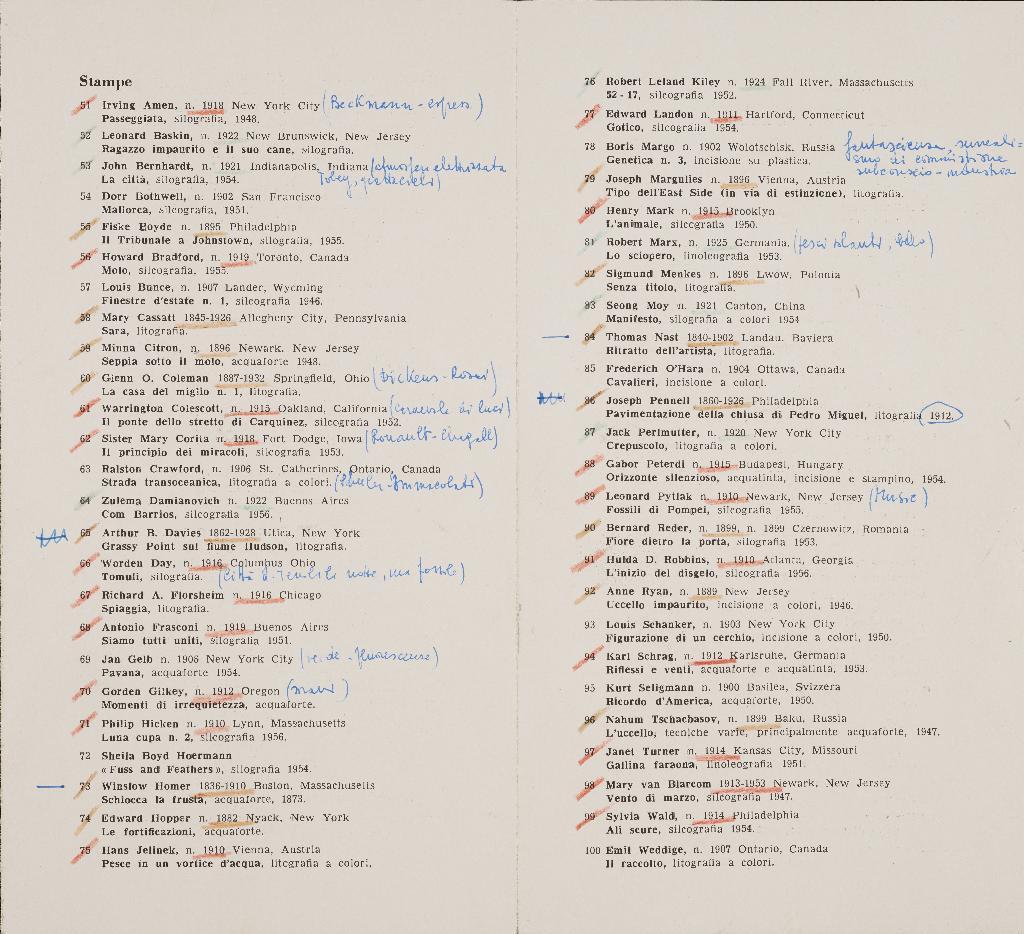 Stampe
51 Irving Amen, n. 1918 New York City (Beckmann - espress.)
Passeggiata, silografia, 1948.
52 Leonard Baskin, n. 1922 New Brunswick, New Jersey
Ragazzo impaurito e il suo cane, silografia.
53 John Bernhardt, n. 1921 Indianapolis, Indiana
La città, silografia, 1954. Tobey, grattacieli)
54 Dorr Bothwell, n. 1902 San Francisco
Mallorca, sileografia, 1951.
55 Fiske Boyde n. 1895 Philadelphia
Il Tribunale a Johnstown, silografia, 1955.
56 Howard Bradford, n. 1919 Toronto, Canada
Molo, silcografia, 1955.
57 Louis Bunce, n. 1907 Lander, Wyoming
Finestre d'estate n. 1, silcografia 1946.
58 Mary Cassatt 1845-1926 Allegheny City, Pennsylvania
Sara, litografia.
59 Minna Citron, n. 1896 Newark, New Jersey
Seppia sotto il molo, acquaforte 1948.
60 Glenn O. Coleman 1887-1932 Springfield, Ohio (Dickens - Rosai)
La casa del miglio n. 1, litografia.
61 Warrington Colescott, n. 1915 Oakland, California (carnevale di luci)
Il ponte dello stretto di Carquinez, silcografia 1952.
62 Sister Mary Corita n. 1918 Fort Dodge, Iowa (Rouault - Chagall)
Il principio dei miracoli, silcografia 1953.
63 Ralston Crawford, n. 1906 St. Catherines, Ontario, Canada
Strada transoceanica, litografia a colori. (Sheeler - Immacolati)
64 Zulema Damianovich n. 1922 Buenos Aires
Com Barrios, silcografia 1956.
65 Arthur B. Davies 1862-1928 Utica, New York
Grassy Point sul fiume Hudson, litografia.
66 Worden Day, n. 1916 Columbus Ohio
Tomuli, silografia.
67 Richard A. Florsheim n. 1916 Chicago
Spiaggia, litografia.
68 Antonio Frasconi n. 1919 Buenos Aires
Siamo tutti uniti, silografia 1951.
69 Jan Gelb n. 1906 New York City
Pavana, acquaforte 1954.
70 Gorden Gilkey, n. 1912 Oregon
Momenti di irrequietezza, acquaforte.
71 Philip Hicken n. 1910 Lynn, Massachusetts
Luna cupa n. 2, silcografia 1956.
72 Sheila Boyd Hoermann
« Fuss and Feathers », silografia 1954.
73 Winslow Homer 1836-1910 Boston, Massachusetts
Schiocca la frusta, acquaforte, 1873.
74 Edward Hopper n. 1882 Nyack, New York
Le fortificazioni, acquaforte.
75 Hans Jelinek, n. 1910 Vienna, Austria
Pesce in un vortice d'acqua, litografia a colori.
76 Robert Leland Kiley n. 1924 Fall River, Massachusetts
52 - 17, silcografia 1952.
77 Edward Landon n. 1911 Hartford, Connecticut
Gotico, silcografia 1954.
78 Boris Margo n. 1902 Wolotschisk, Russia fantascienza, surreali=
Genetica n. 3, incisione su plastica. smo di commistione
subconscio - industria
79 Joseph Margulies n. 1896 Vienna, Austria
Tipo dell'East Side (in via di estinzione), litografia.
80 Henry Mark n. 1915 Brooklyn
L'animale, silcografia 1950.
81 Robert Marx, n. 1925 Germania.
Lo sciopero, linoleografia 1953.
82 Sigmund Menkes n. 1896 Lwow, Polonia
Senza titolo, litografia.
83 Seong Moy n. 1921 Canton, China
Manifesto, silografia a colori 1954
84 Thomas Nast 1840-1902 Landau, Baviera
Ritratto dell'artista, litografia.
85 Frederich O'Hara n. 1904 Ottawa, Canada
Cavalieri, incisione a colori.
86 Joseph Pennell 1860-1926 Philadelphia
Pavimentazione della chiusa di Pedro Miguel, litografia 1912.
87 Jack Perlmutter, n. 1920 New York City
Crepuscolo, litografia a colori.
88 Gabor Peterdi n. 1915 Budapest, Hungary
Orizzonte silenzioso, acquatinta, incisione e stampino, 1954.
89 Leonard Pytlak n. 1910 Newark, New Jersey (Music)
Fossili di Pompei, silcografia 1955.
90 Bernard Reder, n. 1899, n. 1899 Czernowitz, Romania
Fiore dietro la porta, silografia 1953.
91 Hulda D. Robbins, n. 1910 Atlanta, Georgia
L'inizio del disgelo, silcografia 1956.
92 Anne Ryan, n. 1889 New Jersey
Uccello impaurito, incisione a colori, 1946.
93 Louis Schanker, n. 1903 New York City
Figurazione di un cerchio, incisione a colori, 1950.
94 Karl Schrag, n. 1912 Karlsruhe, Germania
Riflessi e venti, acquaforte e acquatinta, 1953.
95 Kurt Seligmann n. 1900 Basilea, Svizzera
Ricordo d'America, acquaforte, 1950.
96 Nahum Tschacbasov, n. 1899 Baku, Russia
L'uccello, tecniche varie, principalmente acquaforte, 1947.
97 Janet Turner n. 1914 Kansas City, Missouri
Gallina faraona, linoleografia 1951.
98 Mary van Blarcom 1913-1953 Newark, New Jersey
Vento di marzo, silcografia 1947.
99 Sylvia Wald, n. 1914 Philadelphia
Ali scure, silcografia 1954.
100 Emil Weddige, n. 1907 Ontario, Canada
Il raccolto, litografia a colori.